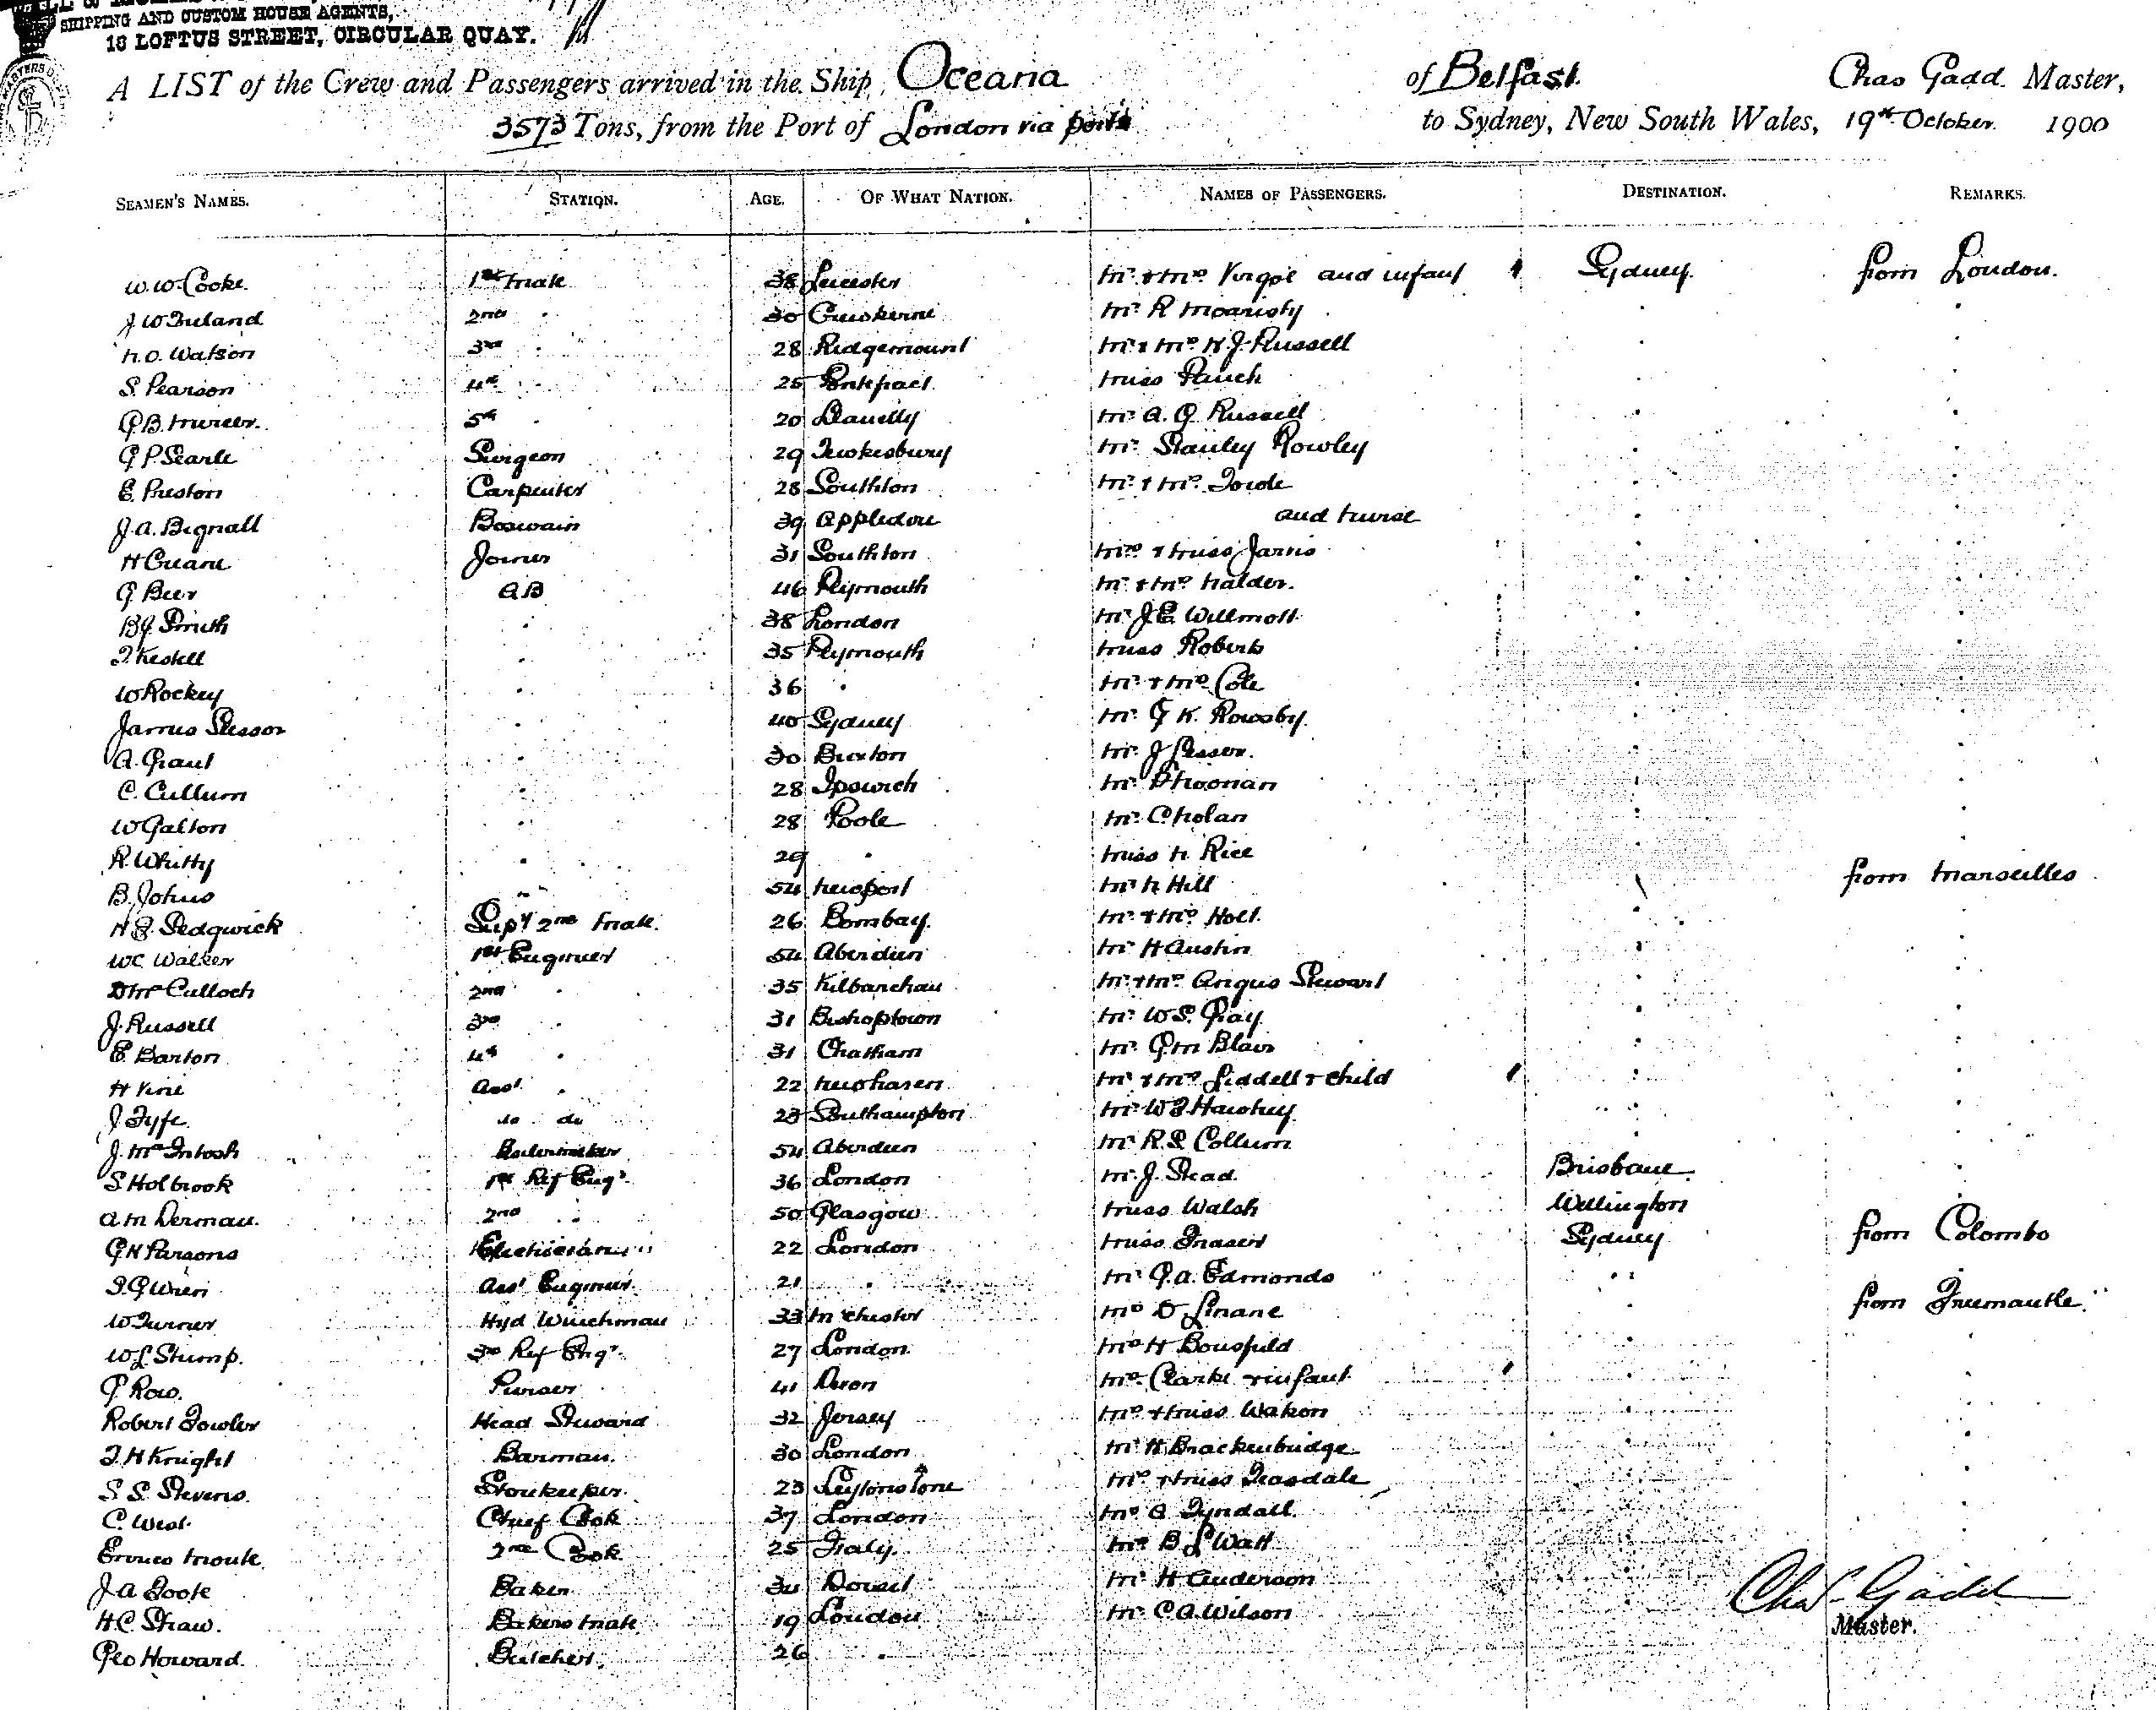 SHIPPING AND CUSTOM HOUSE AGENTS,
18 LOFTUS STREET, CIRCULAR QUAY.
A LIST of the Crew and Passengers arrived in the Ship Oceana of Belfast. Chas Gadd. Master,
3573 Tons, from the Port of London via ports to Sydney, New South Wales, 19th October. 1900
SEAMEN'S NAMES. STATION. AGE. OF WHAT NATION. NAMES OF PASSENGERS. DESTINATION. REMARKS.
W. W. Cooke. 1st Mate 38 Leicester Mr & Mrs Virgoe and infant Sydney. from London.
J W Ireland 2nd " 30 Mr R
N. O. Watson 3rd " 28 Ridgemount Mr & Mrs H. J. Russell
S. Pearson 4th " 25 Pontefract Miss
5th " 20 Llanelly Mr A. G. Russell
G P Searle Surgeon 29 Tewkesbury Mr Stanley Rowley
E. Preston Carpenter 28 Southton Mr & Mrs Toode
J. A. Bignall Boswain 39 Appledore and Nurse
H Joiner 31 Southton Mrs & Miss Jarvis
G Beer AB 46 Plymouth Mr & Mrs Nalder.
B J Smith " 38 London Mr J E Willmott
T. Keskell " 35 Plymouth Miss Roberts
W Rockey " 36 " Mr & Mrs Cole
James Slessor " 40 Sydney Mr G K. Rowsby.
A. Grant " 30 Buxton Mr J Lesser.
C. Cullum " 28 Ipswich Mr Noonan
W Galton " 28 Poole Mr C. Nolan
R. Whitty " 29 " Miss N. Rice
B. Johns " 54 Newport Mr N Hill from Marseilles
H S. Sedgwick Supy 2nd Mate. 26 Bombay. Mr & Mrs Holt.
W C Walker 1st Engineer 54 Aberdeen Mr H Austin
D McCulloch 2nd " 35 Kilbarchan Mr & Mrs Angus Stewart
J. Russell 3rd " 31 Bishoptown Mr W S. Gray.
E. Barton 4th " 31 Chatham Mr G. M Blair
H Vine Asst " 22 Newhaven Mr & Mrs Liddell & child
J Fyfe. do do 23 Southampton Mr W J Hawkey.
J. McIntosh Boilermaker 54 Aberdeen Mr R. S. Collum
S Holbrook 1st Ref Engr 36 London Mr J. Stead. Brisbane.
A M Derman. 2nd " 50 Glasgow Miss Walsh Wellington
G H Parsons Electician 22 London Miss Fraser Sydney from Colombo
T. G Wren Asst Engineer. 21 " Mr G. A. Edmonds
W Turner Hyd Winchman 33 Mchester Mrs D Linane from Freemantle.
W L Stump. 3rd Ref Engr 27 London Mrs H Bousfield
G Row. Purser 41 Devon Mrs Clarke & infant
Robert Fowler Head Steward 32 Jersey Mrs & Miss
T. H Knight Barman. 30 London Mr H Brackenbridge
S. S. Stevens. Storekeeper. 23 Leytonstone Mrs & Miss Teasdale
C. West. Chief Cook 37 London Mrs A Tyndall.
2nd Cook 25 Italy. Mr B. L Watt
J. A Toole Baker 34 Dorset Mr H Anderson
H. C. Shaw. Bakers Mate 19 London Mr C A. Wilson
Geo Howard. Butcher. 26 "
Chas Gadd
Master.